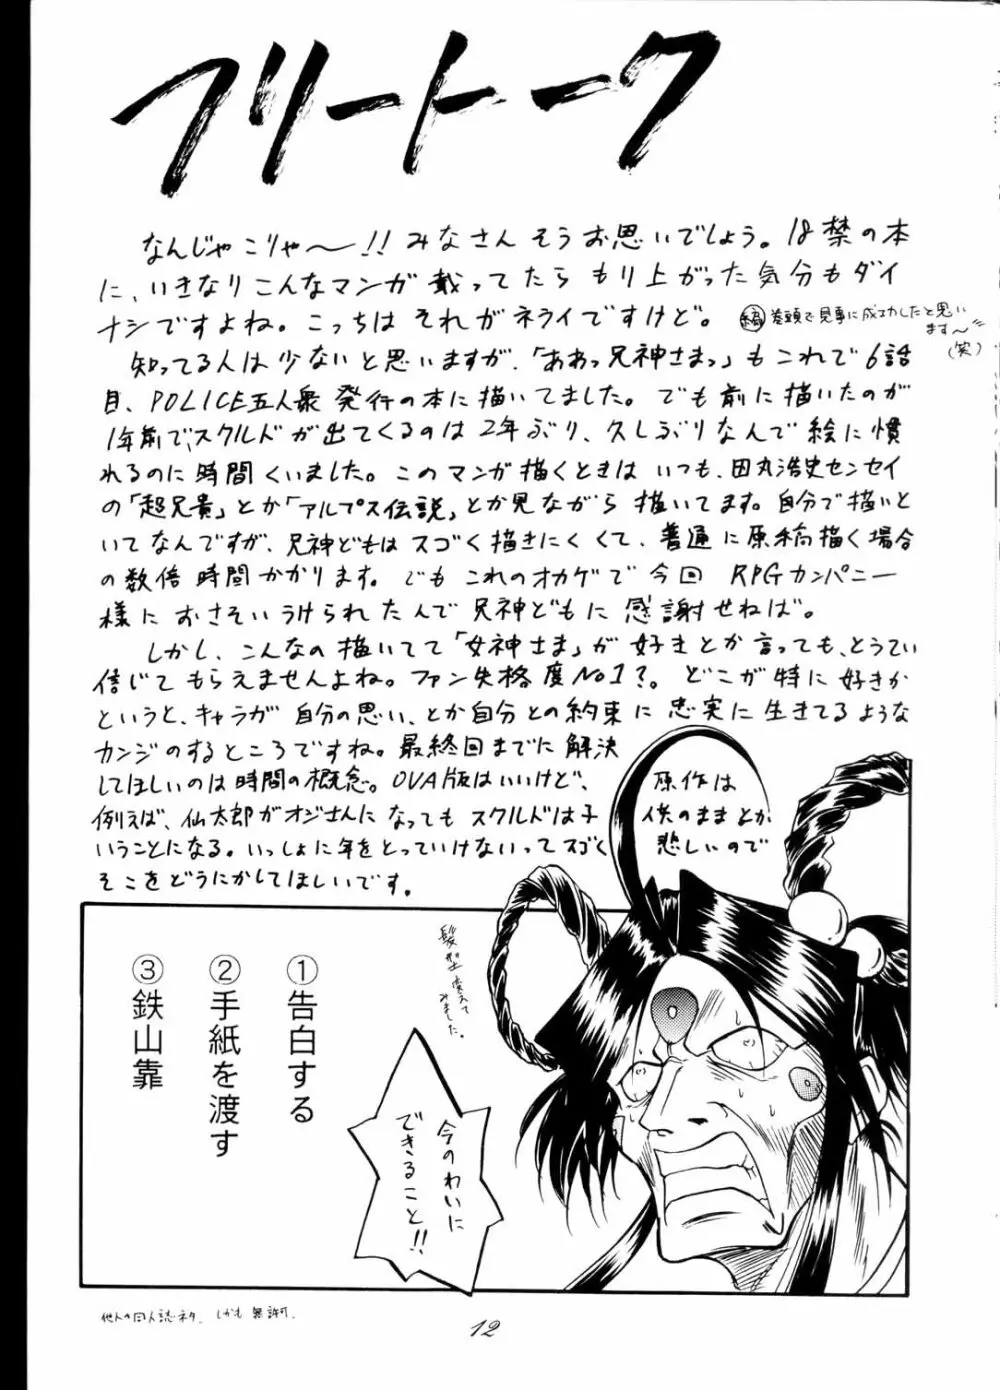 フリートーク
なんじゃこりゃ〜!! みなさんそうお思いでしょう。18禁の本
に、いきなりこんなマンガ載ってたら もり上がった気分もダイ
ナシですよね。こっちは それがネライですけど。
巻頭で見事に成功したと思い
ます〜
(笑)
知ってる人は少ないと思いますが、「ああっ兄神さまっ」もこれで6話
目、POLICE五人衆 発行の本に描いてました。でも前に描いたのが
1年前で、スクルドが出てくるのは2年ぶり、久しぶりなんで絵に慣
れるのに時間くいました。このマンガ描くときは いつも、田丸浩史センセイ
の「超兄貴」とか「アルプス伝説」とか見ながら描いてます。自分で描いと
いてなんですが、兄神どもはスゴく描きにくくて、普通に原稿描く場合
の数倍時間かかります。でもこれのオカゲで今回 RPGカンパニー
様に おさそいうけられたんで兄神どもに感謝せねば。
しかし、こんなの描いてて「女神さま」が好きとか言っても、とうてい
信じてもらえませんよね。ファン失格度No1?。どこが特に好きか
というと、キャラが自分の思い、とか自分との約束に忠実に生きてるような
カンジのするところですね。最終回までに解決
してほしいのは時間の概念。OVA版はいいけど、原作は
例えば、仙太郎がオジさんになってもスクルドは子供のままとか
いうことになる。いっしょに年をとっていけないってスゴく悲しいので
そこをどうにかしてほしいです。
髪型変えて
みました。
①告白する
②手紙を渡す
③鉄山靠
今のわいに
できること!!
他人の同人誌ネタ。しかも無許可。
12